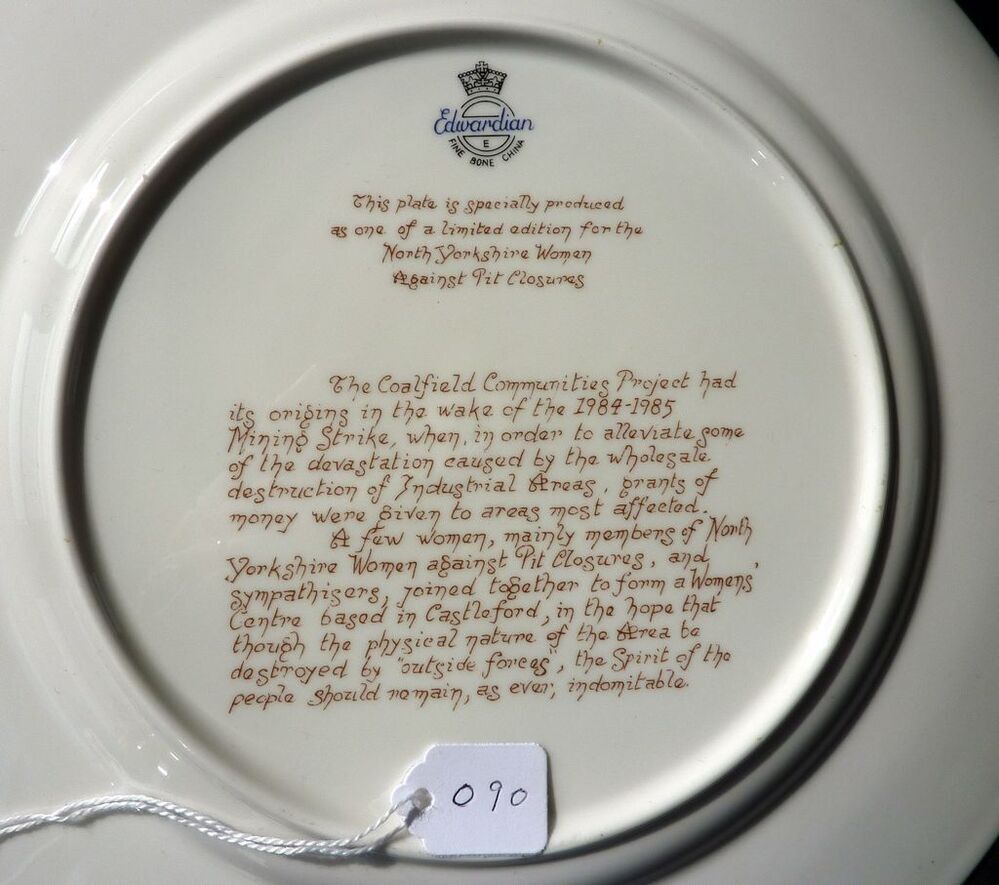 Edwardian
E
FINE BONE CHINA
This plate is specially produced
as one of a limited edition for the
North Yorkshire Women
Against Pit Closures
The Coalfield Communities Project had
its origins in the wake of the 1984-1985
Mining Strike, when, in order to alleviate some
of the devastation caused by the wholesale
destruction of Industrial Areas, grants of
money were given to areas most affected.
A few women, mainly members of North
Yorkshire Women against Pit Closures, and
sympathisers, joined together to form a Womens'
Centre based in Castleford, in the hope that
though the physical nature of the Area be
destroyed by "outside forces", the Spirit of the
people should remain, as ever, indomitable.
090